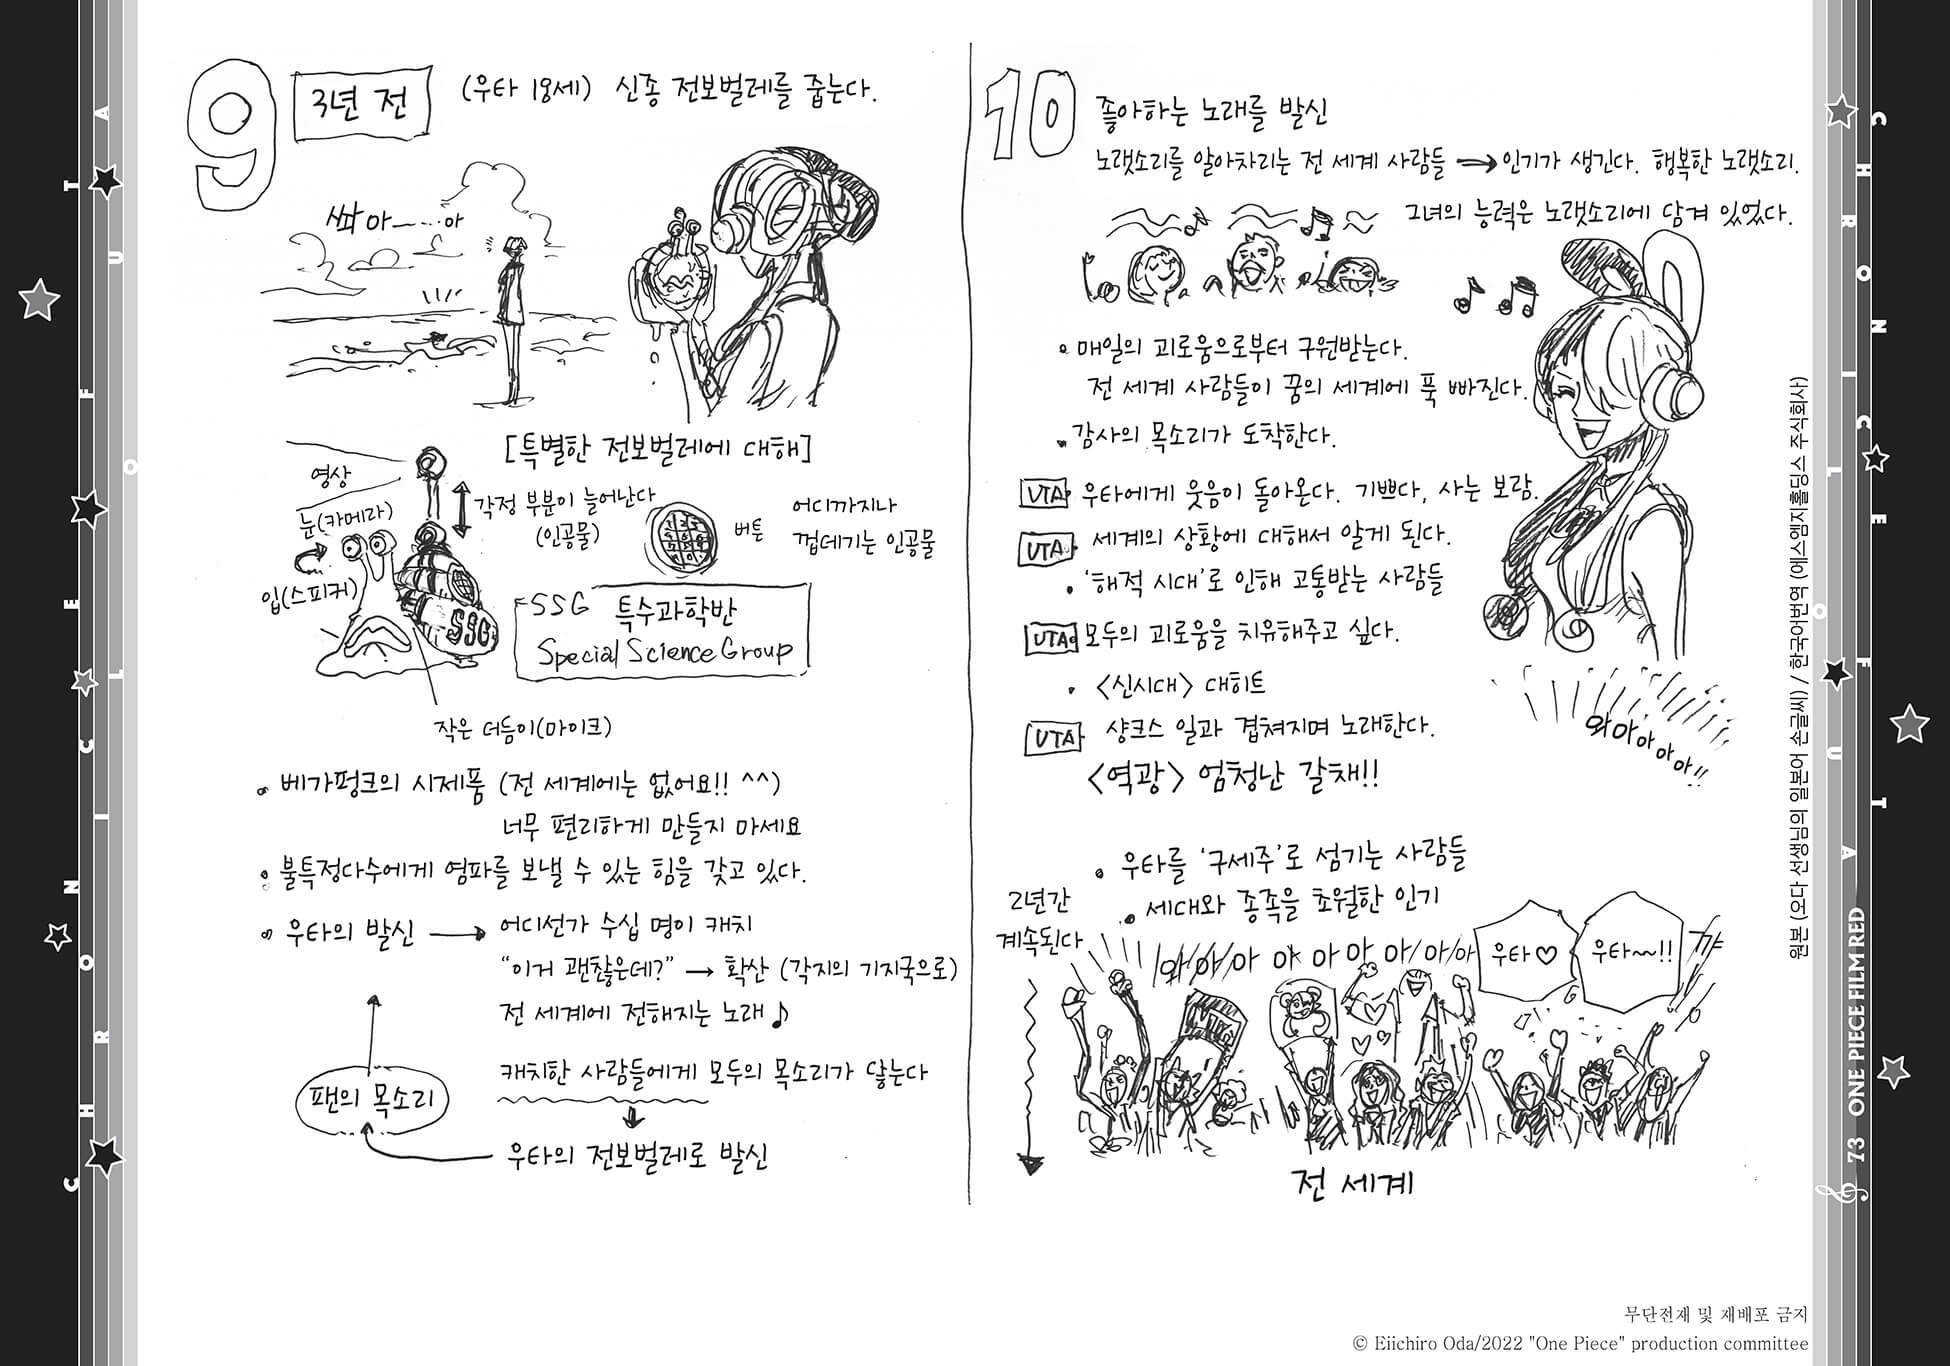 9
3년 전
(우타 18세) 신종 전보벌레를 줍는다.
쏴아―‥‥아
[특별한 전보벌레에 대해]
영상
눈(카메라)
입(스피커)
각정 부분이 늘어난다
(인공물)
버튼
어디까지나
껍데기는 인공물
SSG
SSG 특수과학반
Special Science Group
작은 더듬이(마이크)
• 베가펑크의 시제품 (전 세계에는 없어요!! ^^)
너무 편리하게 만들지 마세요
• 불특정다수에게 염파를 보낼 수 있는 힘을 갖고 있다.
• 우타의 발신 → 어디선가 수십 명이 캐치
“이거 괜찮은데?” → 확산 (각지의 기지국으로)
전 세계에 전해지는 노래♪
캐치한 사람들에게 모두의 목소리가 닿는다
팬의 목소리
우타의 전보벌레로 발신
10
좋아하는 노래를 발신
노랫소리를 알아차리는 전 세계 사람들 → 인기가 생긴다. 행복한 노랫소리.
그녀의 능력은 노랫소리에 담겨 있었다.
• 매일의 괴로움으로부터 구원받는다.
전 세계 사람들이 꿈의 세계에 푹 빠진다.
• 감사의 목소리가 도착한다.
UTA 우타에게 웃음이 돌아온다. 기쁘다, 사는 보람.
UTA 세계의 상황에 대해서 알게 된다.
• ‘해적 시대’로 인해 고통받는 사람들
UTA 모두의 괴로움을 치유해주고 싶다.
• <신시대> 대히트
UTA 샹크스 일과 겹쳐지며 노래한다.
<역광> 엄청난 갈채!!
와아아아아!!
• 우타를 ‘구세주’로 섬기는 사람들
• 세대와 종족을 초월한 인기
2년간
계속된다
와아아아아아아아아
우타♡
우타~!!
꺄
전 세계
원본 (오다 선생님의 일본어 손글씨) / 한국어번역 (에스엠지홀딩스 주식회사)
CHRONICLE OF UTA
CHRONICLE OF UTA
73 ONE PIECE FILM RED
무단전재 및 재배포 금지
© Eiichiro Oda/2022 "One Piece" production committee